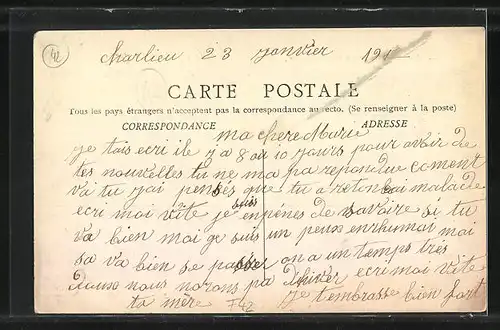 42
charlieu 23 janvier 191
CARTE POSTALE
Tous les pays étrangers n'acceptent pas la correspondance au recto. (Se renseigner à la poste)
CORRESPONDANCE
ADRESSE
ma chere Marie
je tais ecri ile y a 8 ou 10 jours pour avoir de
tes nouvelles tu ne ma pa repondue coment
va tu jai pensés que tu a malade
ecri moi vite je suis enpénes de savoire si tu
va bien moi ge suis un peux enrhumai moi
sa va bien se passer on a un temps très
douse nous norons pa dhiver ecri moi vite
ta mère F42 je tembrasse bien fort